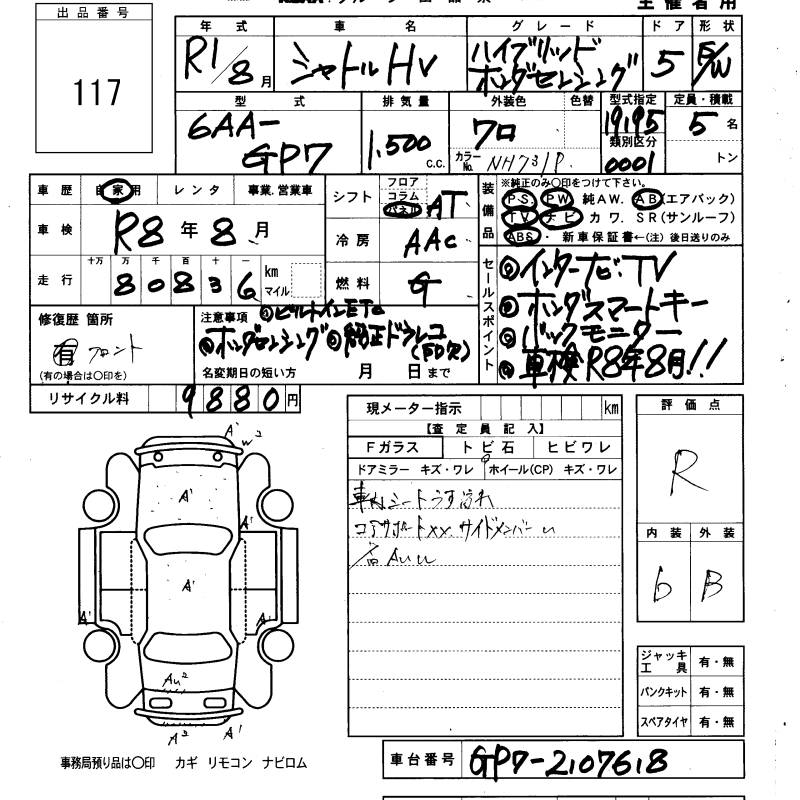 出品番号
117
主催者用
年式 車名 グレード ドア 形状
R1/8月 シャトルHV ハイブリッド ホンダセンシング 5 E/W
型式 排気量 外装色 色替 型式指定 定員・積載
6AA-GP7 1,500 c.c. クロ 19195 5名
カラーNo. NH731P 類別区分 0001 トン
車歴 自家用 レンタ 事業.営業車
車検 R8年8月
走行 十万 万 千 百 十 一
80836 km マイル
シフト フロア コラム パネル AT
冷房 AAC
燃料 G
装備品
※純正のみ〇印をつけて下さい。
PS PW 純AW. AB(エアバック)
TV ナビ カワ. SR(サンルーフ)
ABS・ 新車保証書←(注) 後日送りのみ
セールスポイント
①インターナビ・TV
②ホンダスマートキー
③バックモニター
④車検R8年8月!!
修復歴 箇所
有 フロント
(有の場合は〇印を)
注意事項 ①ビルトインETC
②ホンダセンシング③純正ドラレコ
名変期日の短い方 月 日まで
リサイクル料 9880円
現メーター指示 km
【査定員記入】
Fガラス トビ石 ヒビワレ
ドアミラー キズ・ワレ ホイール(CP) キズ・ワレ
車内シートうす汚れ
コアサポートXX. サイドメンバーU
評価点
R
内装 外装
6 B
ジャッキ工具 有・無
パンクキット 有・無
スペアタイヤ 有・無
A' W2
A'
A'
A'
A' A'
AU2
A2 A'
事務局預り品は〇印 カギ リモコン ナビロム
車台番号 GP7-2107618